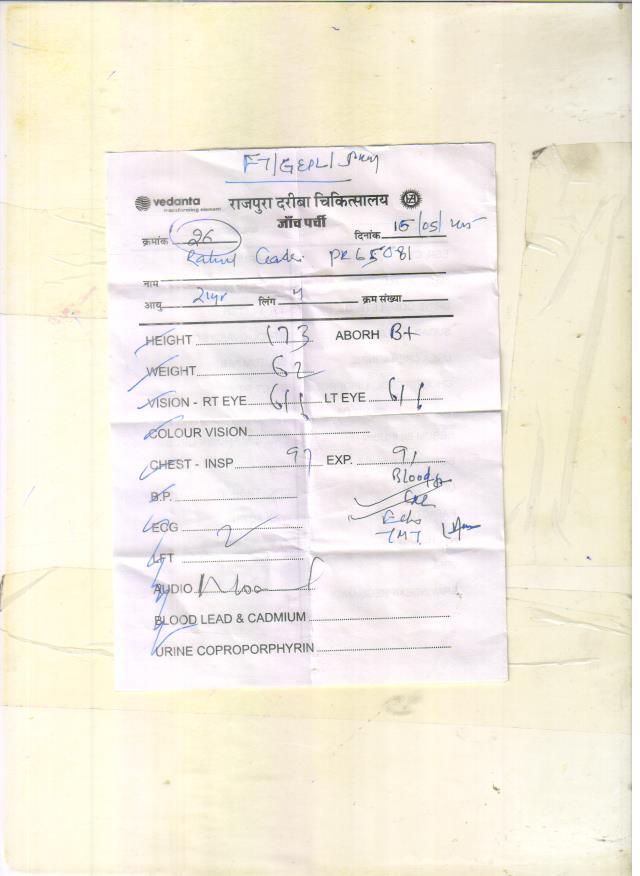 F7/GEPL/
vedanta राजपुरा दरीबा चिकित्सालय
transforming elements
जाँच पर्ची
क्रमांक 26 दिनांक 15/05/
नाम
आयु 21yr लिंग M क्रम संख्या
HEIGHT 173 ABORH B+
WEIGHT 62
VISION - RT EYE 6/6 LT EYE 6/6
COLOUR VISION
CHEST - INSP 97 EXP. 91
Blood
B.P.
CXR
ECG Echo
TMT
LFT
AUDIO
BLOOD LEAD & CADMIUM
URINE COPROPORPHYRIN